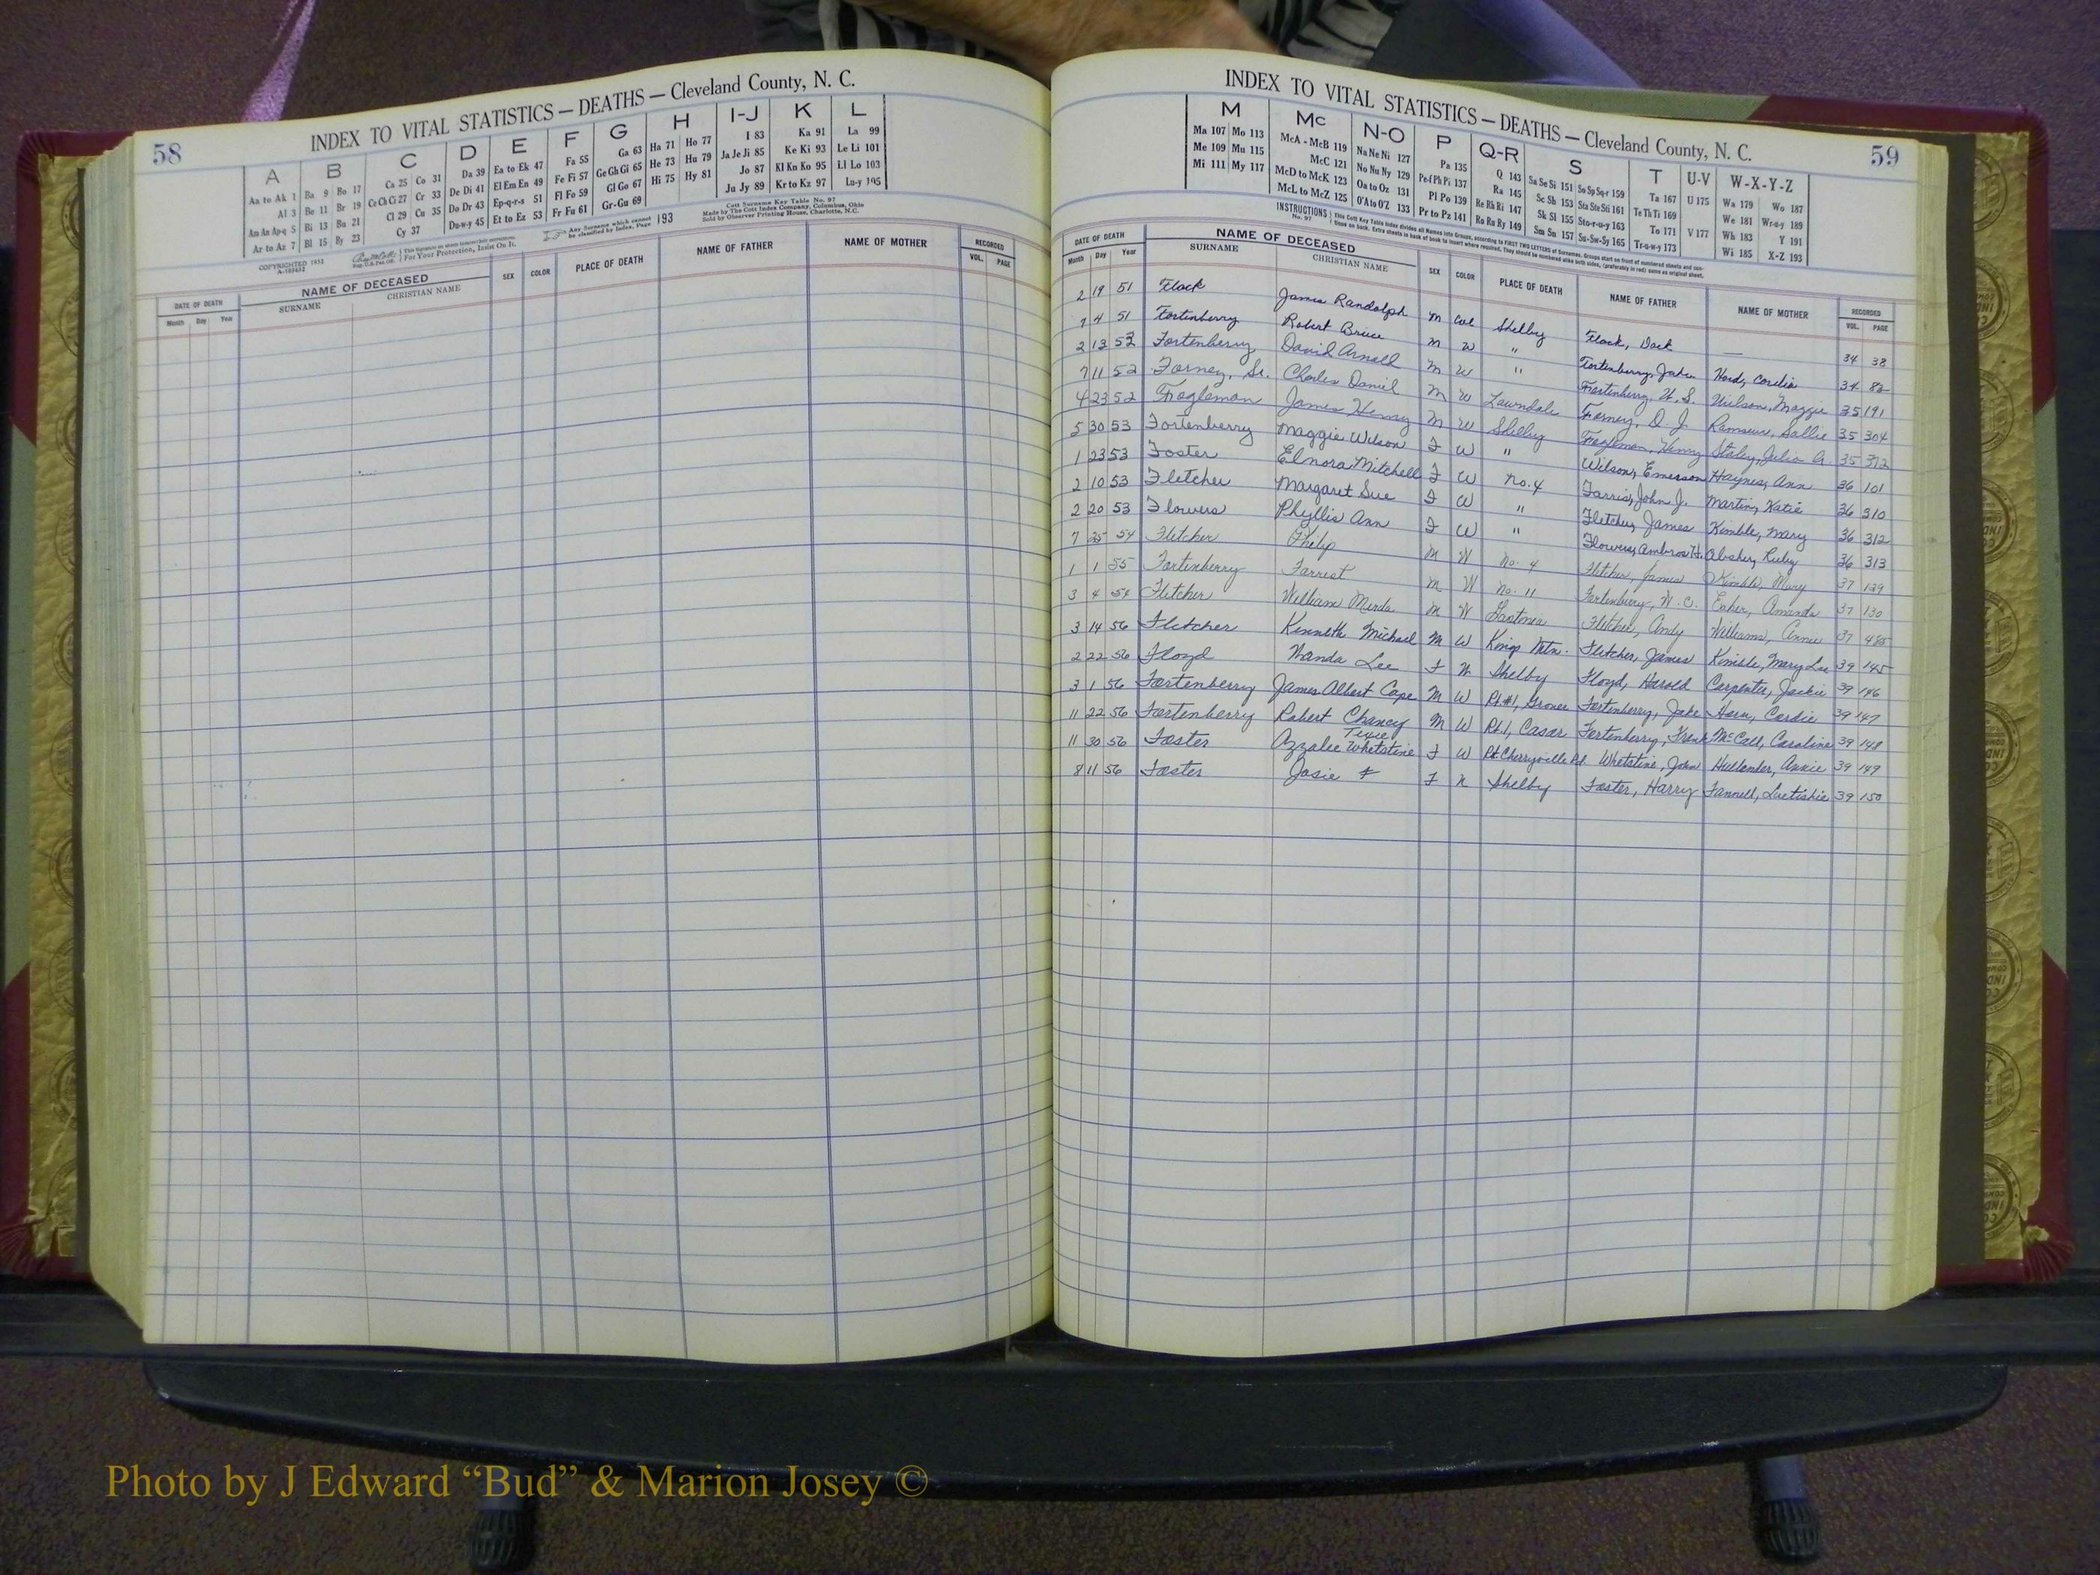 58
INDEX TO VITAL STATISTICS — DEATHS — Cleveland County, N. C.
A B C D E F G H I-J K L
Aa to Ak 1 Ba 9 Bo 17 Ca 25 Co 31 Da 39 Ea to Ek 47 Fa 55 Ga 63 Ha 71 Ho 77 I 83 Ka 91 La 99
Al 3 Be 11 Br 19 Ce Ch Ci 27 Cr 33 De Di 41 El Em En 49 Fe Fi 57 Ge Gh Gi 65 He 73 Hu 79 Ja Je Ji 85 Ke Ki 93 Le Li 101
Am An Ap-q 5 Bi 13 Bu 21 Cl 29 Cu 35 Do Dr 43 Ep-q-r-s 51 Fl Fo 59 Gl Go 67 Hi 75 Hy 81 Jo 87 Kl Kn Ko 95 Ll Lo 103
Ar to Az 7 Bl 15 By 23 Cy 37 Du-w-y 45 Et to Ez 53 Fr Fu 61 Gr-Gu 69 Ju Jy 89 Kr to Kz 97 Lu-y 105
COPYRIGHTED
For Your Protection, Insist On It.
Any Surname which cannot be classified by Index, Page 193
Cott Surname Key Table No. 97
Made by The Cott Index Company, Columbus, Ohio
Sold by Observer Printing House, Charlotte, N.C.
DATE OF DEATH NAME OF DECEASED SEX COLOR PLACE OF DEATH NAME OF FATHER NAME OF MOTHER RECORDED
Month Day Year SURNAME CHRISTIAN NAME VOL. PAGE
INDEX TO VITAL STATISTICS — DEATHS — Cleveland County, N. C.
59
M Mc N-O P Q-R S T U-V W-X-Y-Z
Ma 107 Mo 113 McA - McB 119 Na Ne Ni 127 Pa 135 Q 143 Sa Se Si 151 So Sp Sq-r 159 Ta 167 U 175 Wa 179 Wo 187
Me 109 Mu 115 McC 121 No Nu Ny 129 Pe-f Ph Pi 137 Ra 145 Sc Sh 153 Sta Ste Sti 161 Te Th Ti 169 We 181 Wr-u-y 189
Mi 111 My 117 McD to McK 123 Oa to Oz 131 Pl Po 139 Re Rh Ri 147 Sk Sl 155 Sto-r-u-y 163 To 171 V 177 Wh 183 Y 191
McL to McZ 125 O'A to O'Z 133 Pr to Pz 141 Ro Ru Ry 149 Sm Sn 157 Su-Sw-Sy 165 Tr-u-w-y 173 Wi 185 X-Z 193
INSTRUCTIONS No. 97
DATE OF DEATH NAME OF DECEASED SEX COLOR PLACE OF DEATH NAME OF FATHER NAME OF MOTHER RECORDED
Month Day Year SURNAME CHRISTIAN NAME VOL. PAGE
2 19 51 Flack James Randolph M Col Shelby Flack, Dock — 34 38
7 4 51 Fortenberry Robert Bruce M W " Fortenberry, Jake Hord, Cordia 34 82
2 13 52 Fortenberry David Arnold M W " Fortenberry, W. S. Wilson, Maggie 35 191
7 11 52 Forney, Sr. Charles Daniel M W Lawndale Forney, D. J. Ramseur, Sallie 35 304
4 23 52 Fogleman James Henry M W Shelby Fogleman, Henry Staley, Julia A. 35 372
5 30 53 Fortenberry Maggie Wilson F W " Wilson, Emerson Haynes, Ann 36 101
1 23 53 Foster Elnora Mitchell F W No. 4 Farris, John J. Martin, Katie 36 310
2 10 53 Fletcher Margaret Sue F W " Fletcher, James Kimble, Mary 36 312
2 20 53 Flowers Phyllis Ann F W " Flowers, Ambros H. Absher, Ruby 36 313
7 25 54 Fletcher Philip M W No. 4 Fletcher, James Kimble, Mary 37 129
1 1 55 Fortenberry Forrest M W No. 11 Fortenberry, W. C. Amanda 37 130
3 4 54 Fletcher William M W Gastonia Fletcher, Andy Williams, Annie 37 485
3 14 56 Fletcher Kenneth Michael M W Kings Mtn. Fletcher, James Kimble, Mary Lee 39 145
2 22 56 Floyd Wanda Lee F N Shelby Floyd, Harold Carpenter, Jackie 39 146
3 1 56 Fortenberry James Albert Cape M W Rt. #1, Grover Fortenberry, Jake Horn, Cordie 39 147
11 22 56 Fortenberry Robert Chancy M W Rt. 1, Casar Fortenberry, Frank McCall, Caroline 39 148
11 30 56 Foster Azzalee Texie Whetstine F W Rt. Cherryville Rd. Whetstine, John Hullender, Annie 39 149
8 11 56 Foster Josie F F N Shelby Foster, Harry Fannell, Luetishie 39 150
Photo by J Edward “Bud” & Marion Josey ©